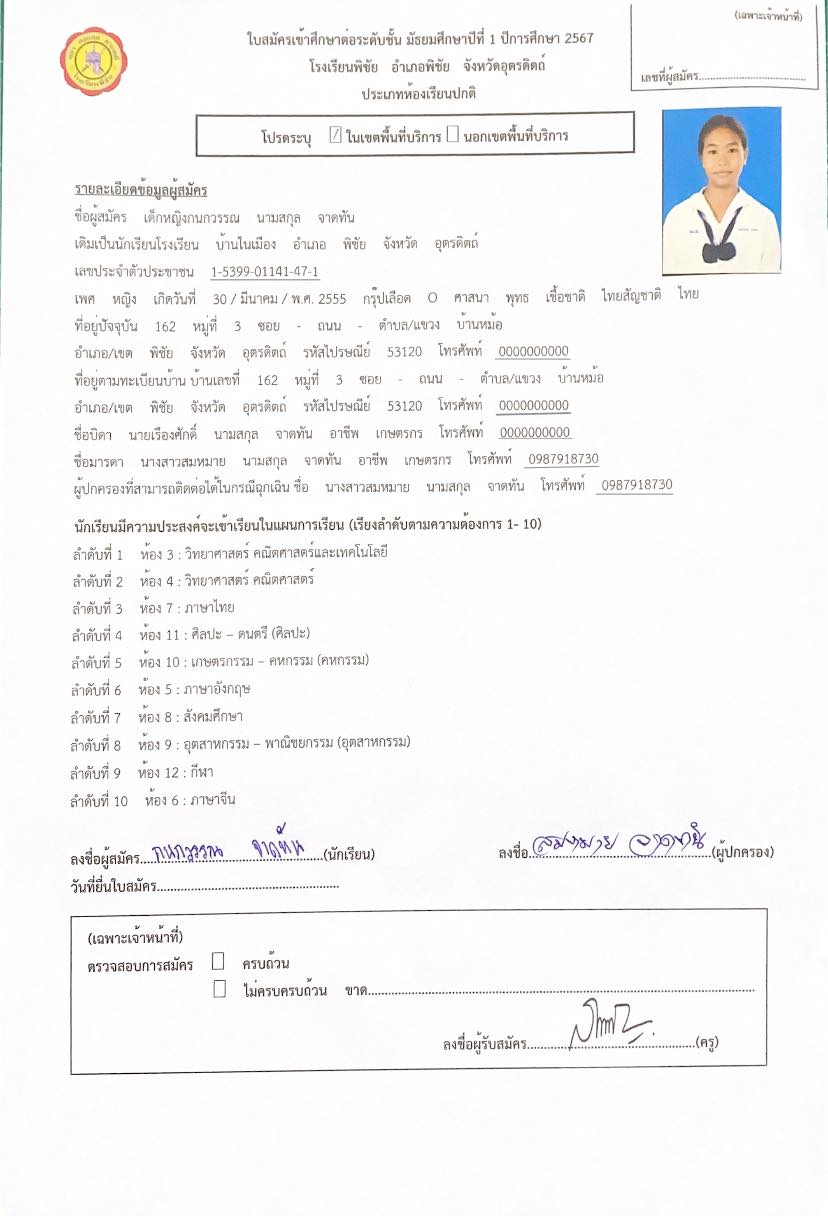 (เฉพาะเจ้าหน้าที่)
เลขที่ผู้สมัคร
ใบสมัครเข้าศึกษาต่อระดับชั้น มัธยมศึกษาปีที่ 1 ปีการศึกษา 2567
โรงเรียนพิชัย อำเภอพิชัย จังหวัดอุตรดิตถ์
ประเภทห้องเรียนปกติ
โปรดระบุ ☑ ในเขตพื้นที่บริการ ☐ นอกเขตพื้นที่บริการ
รายละเอียดข้อมูลผู้สมัคร
ชื่อผู้สมัคร เด็กหญิงกนกวรรณ นามสกุล จาดทัน
เดิมเป็นนักเรียนโรงเรียน บ้านในเมือง อำเภอ พิชัย จังหวัด อุตรดิตถ์
เลขประจำตัวประชาชน 1-5399-01141-47-1
เพศ หญิง เกิดวันที่ 30 / มีนาคม / พ.ศ. 2555 กรุ๊ปเลือด O ศาสนา พุทธ เชื้อชาติ ไทยสัญชาติ ไทย
ที่อยู่ปัจจุบัน 162 หมู่ที่ 3 ซอย - ถนน - ตำบล/แขวง บ้านหม้อ
อำเภอ/เขต พิชัย จังหวัด อุตรดิตถ์ รหัสไปรษณีย์ 53120 โทรศัพท์ 0000000000
ที่อยู่ตามทะเบียนบ้าน บ้านเลขที่ 162 หมู่ที่ 3 ซอย - ถนน - ตำบล/แขวง บ้านหม้อ
อำเภอ/เขต พิชัย จังหวัด อุตรดิตถ์ รหัสไปรษณีย์ 53120 โทรศัพท์ 0000000000
ชื่อบิดา นายเรืองศักดิ์ นามสกุล จาดทัน อาชีพ เกษตรกร โทรศัพท์ 0000000000
ชื่อมารดา นางสาวสมหมาย นามสกุล จาดทัน อาชีพ เกษตรกร โทรศัพท์ 0987918730
ผู้ปกครองที่สามารถติดต่อได้ในกรณีฉุกเฉิน ชื่อ นางสาวสมหมาย นามสกุล จาดทัน โทรศัพท์ 0987918730
นักเรียนมีความประสงค์จะเข้าเรียนในแผนการเรียน (เรียงลำดับตามความต้องการ 1- 10)
ลำดับที่ 1 ห้อง 3 : วิทยาศาสตร์ คณิตศาสตร์และเทคโนโลยี
ลำดับที่ 2 ห้อง 4 : วิทยาศาสตร์ คณิตศาสตร์
ลำดับที่ 3 ห้อง 7 : ภาษาไทย
ลำดับที่ 4 ห้อง 11 : ศิลปะ – ดนตรี (ศิลปะ)
ลำดับที่ 5 ห้อง 10 : เกษตรกรรม – คหกรรม (คหกรรม)
ลำดับที่ 6 ห้อง 5 : ภาษาอังกฤษ
ลำดับที่ 7 ห้อง 8 : สังคมศึกษา
ลำดับที่ 8 ห้อง 9 : อุตสาหกรรม – พาณิชยกรรม (อุตสาหกรรม)
ลำดับที่ 9 ห้อง 12 : กีฬา
ลำดับที่ 10 ห้อง 6 : ภาษาจีน
ลงชื่อผู้สมัคร กนกวรรณ จาดทัน (นักเรียน) ลงชื่อ สมหมาย จาดทัน (ผู้ปกครอง)
วันที่ยื่นใบสมัคร
(เฉพาะเจ้าหน้าที่)
ตรวจสอบการสมัคร ☐ ครบถ้วน
☐ ไม่ครบครบถ้วน ขาด
ลงชื่อผู้รับสมัคร (ครู)